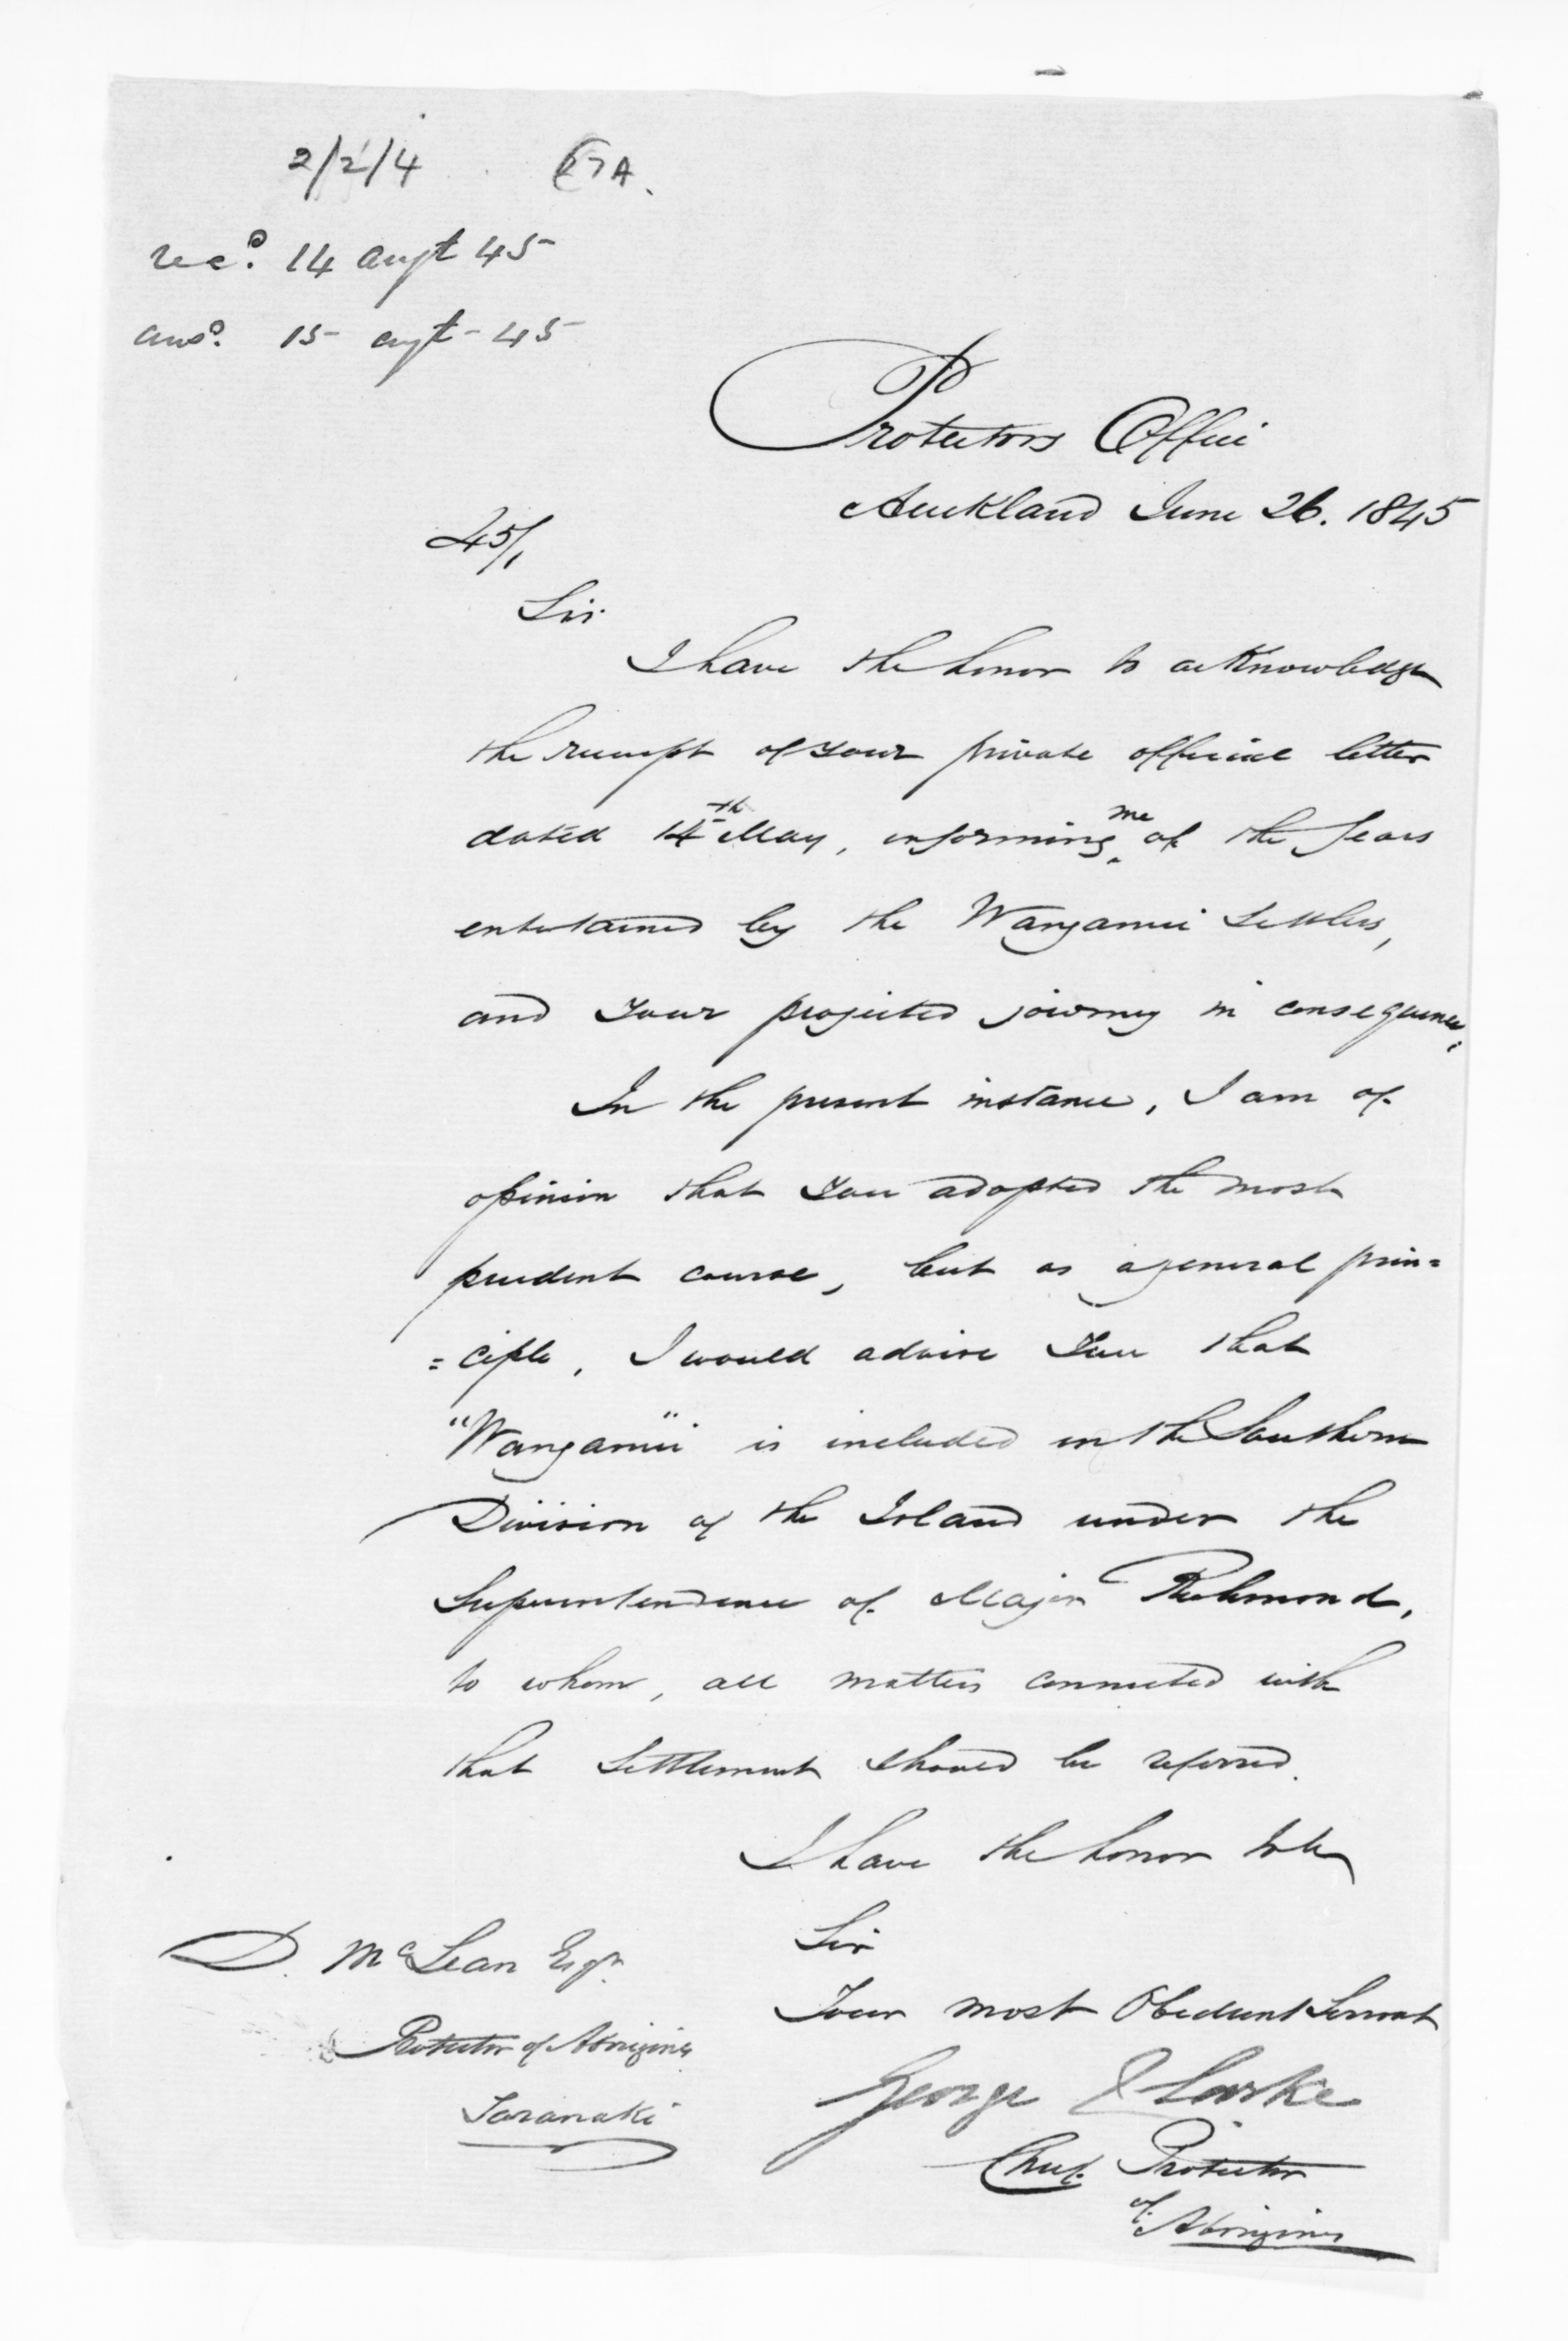 2/2/4
recd. 14 augt 45
ansd. 15 augt - 45
Protectors Office
Auckland June 26. 1845
45/1
Sir
I have the honor to acknowledge
the receipt of your private official letter
dated 14th May, informing me of the fears
entertained by the Wanganui Settlers,
and your projected journey in consequence.
In the present instance, I am of
opinion that you adopted the most
prudent course, but as a general prin=
=ciple, I would advise you that
"Wanganui" is included in the Southern
Division of the Island under the
Superintendence of Major Richmond,
to whom, all matters connected with
that Settlement should be referred.
I have the honor to be
Sir
Your most Obedient Servant
George Clarke
Chief Protector
of Aborigines
D. McLean Esqr.
Protector of Aborigines
Taranaki